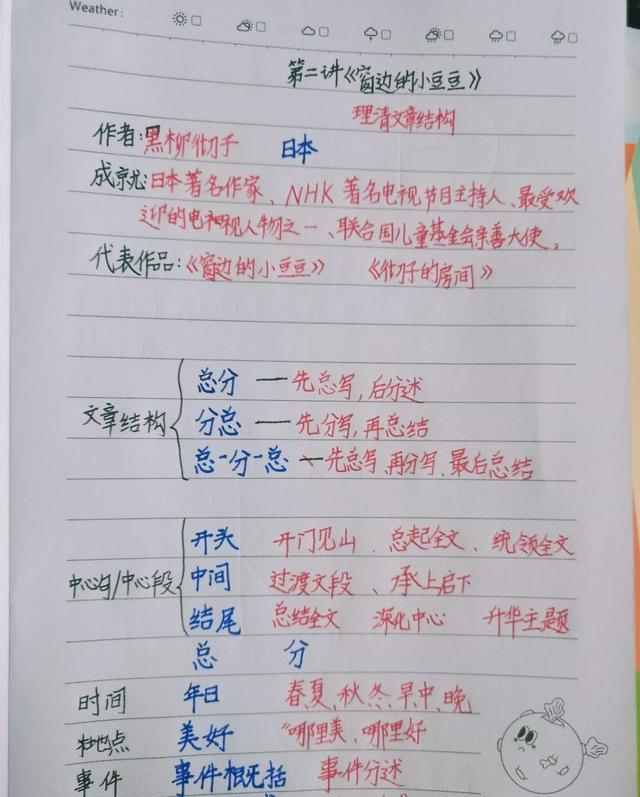 Weather:
第二讲《窗边的小豆豆》
理清文章结构
作者:黑柳彻子 日本
成就:日本著名作家、NHK著名电视节目主持人、最受欢
迎的电视人物之一、联合国儿童基金会亲善大使。
代表作品:《窗边的小豆豆》 《彻子的房间》
总分 — 先总写,后分述
文章结构 分总 — 先分写,再总结
总-分-总 — 先总写,再分写、最后总结
开头 开门见山、总起全文、统领全文
中心句/中心段 中间 过渡文段、承上启下
结尾 总结全文 深化中心 升华主题
总 分
时间 年日 春、夏、秋、冬、早、中、晚
地点 美好 "哪里美、哪里好
事件 事件概括 事件分述